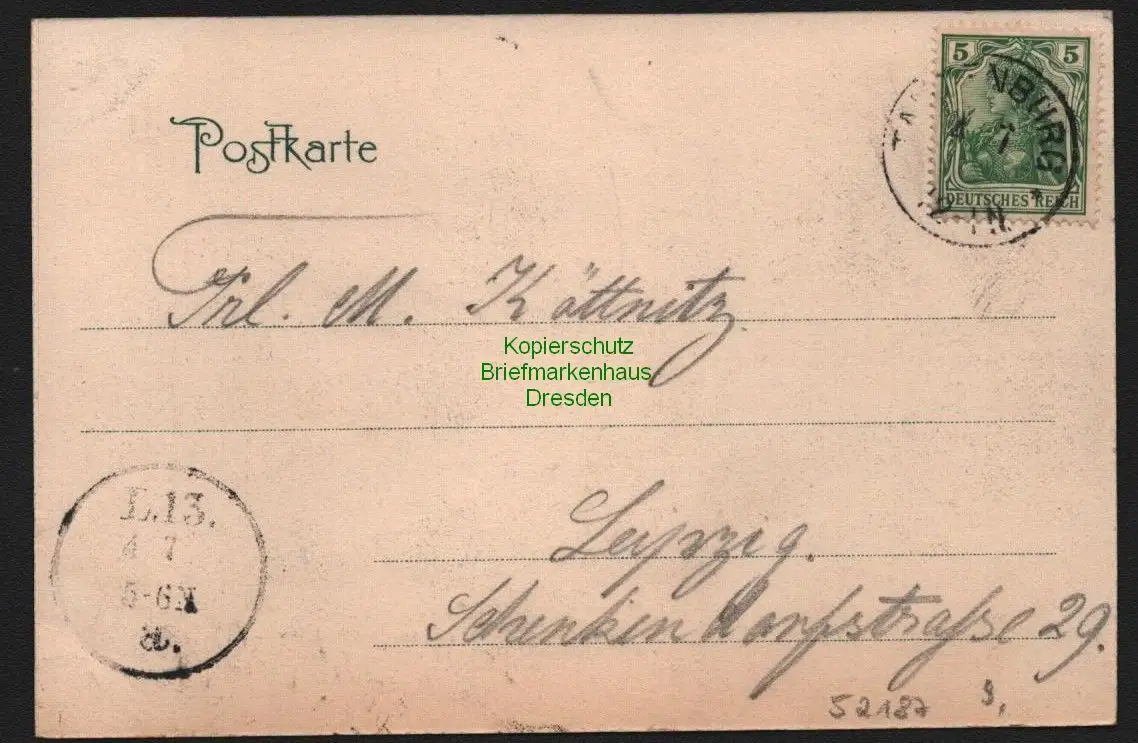 5 5
NBURG
4 7
DEUTSCHES REICH
Postkarte
Frl. M. Köttnitz
Kopierschutz
Briefmarkenhaus
Dresden
L.13.
4 7
5-6N
Leipzig.
Schenkendorfstraße 29.
52187